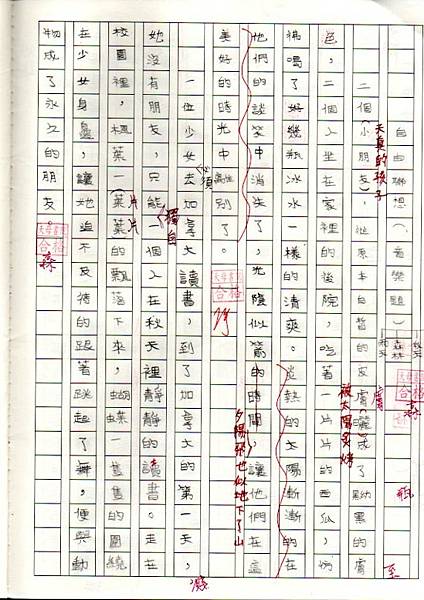 自由聯想(音樂題)
二個(小朋友),他原本白皙的皮膚(曬)成了黝黑的膚
天真的孩子
膚
被太陽炙烤
色,二個人坐在家裡的後院,吃著一片片的西瓜,
喝了好幾瓶冰水一樣的清爽。炎熱的太陽漸漸的在
瓶
夕陽張也似地下了山
他們的談笑中消失了,光陰似箭的時間,讓他們在這
美好的時光中離別了。
一位少女必須去加拿大讀書,到了加拿大的第一天,
她沒有朋友,只能一個人在秋天裡靜靜的讀書。走在
獨自
校園裡,楓葉一(葉)片一(葉)片的飄落下來,蝴蝶一隻隻的圍繞
在少女身邊,讓她迫不及待的跟著跳起了舞,便與動
物成了永久的朋友。
合格
森
合格
合格